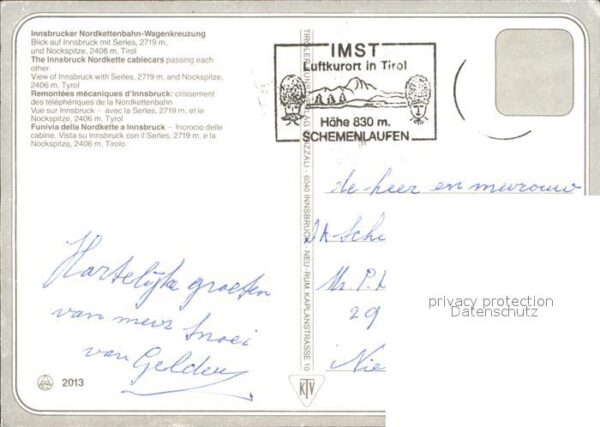 Innsbrucker Nordkettenbahn-Wagenkreuzung
Blick auf Innsbruck mit Serles, 2719 m,
und Nockspitze, 2406 m, Tirol
The Innsbruck Nordkette cablecars passing each
other.
View of Innsbruck with Serles, 2719 m, and Nockspitze,
2406 m, Tyrol
Remontées mécaniques d'Innsbruck: croisement
des téléphériques de la Nordkettenbahn
Vue sur Innsbruck – avec la Serles, 2719 m, et le
Nockspitze, 2406 m, Tyrol
Funivia della Nordkette a Innsbruck – Incrocio delle
cabine. Vista su Innsbruck con il Serles, 2719 m, e la
Nockspitze, 2406 m, Tirolo
IMST
Luftkurort in Tirol
Höhe 830 m.
SCHEMENLAUFEN
6040 INNSBRUCK - NEU RUM, KAPLANSTRASSE 10
de heer en mevrouw
Mr. P.
29
Nie
privacy protection
Datenschutz
Hartelijke groeten
van mevr Snoei
van Gelder
2013
KTV